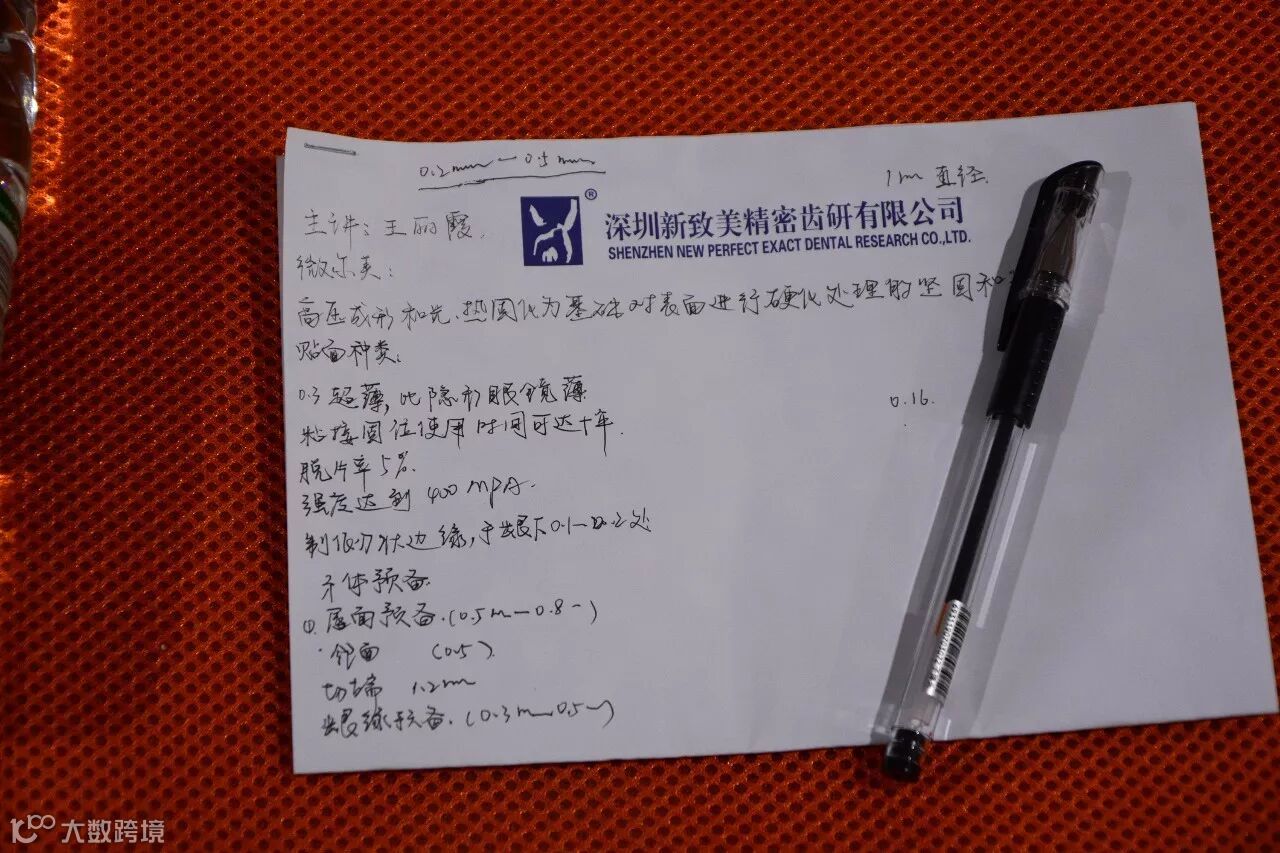 0.2mm—0.5mm
1mm 直径.
主讲:王丽霞.
®
深圳新致美精密齿研有限公司
SHENZHEN NEW PERFECT EXACT DENTAL RESEARCH CO.,LTD.
微尔美:
高压成形和光.热固化为基础对表面进行硬化处理的坚固和
贴面种类:
0.3超薄,比隐形眼镜薄
0.16.
粘接固位使用时间可达十年.
脱片率5%.
强度达到400MPA.
制作刃状边缘,于龈下0.1—0.2处
牙体预备
①.唇面预备.(0.5m—0.8—)
·邻面 (0.5).
切端 1.2mm
龈缘预备.(0.3m—0.5m)
大数跨境